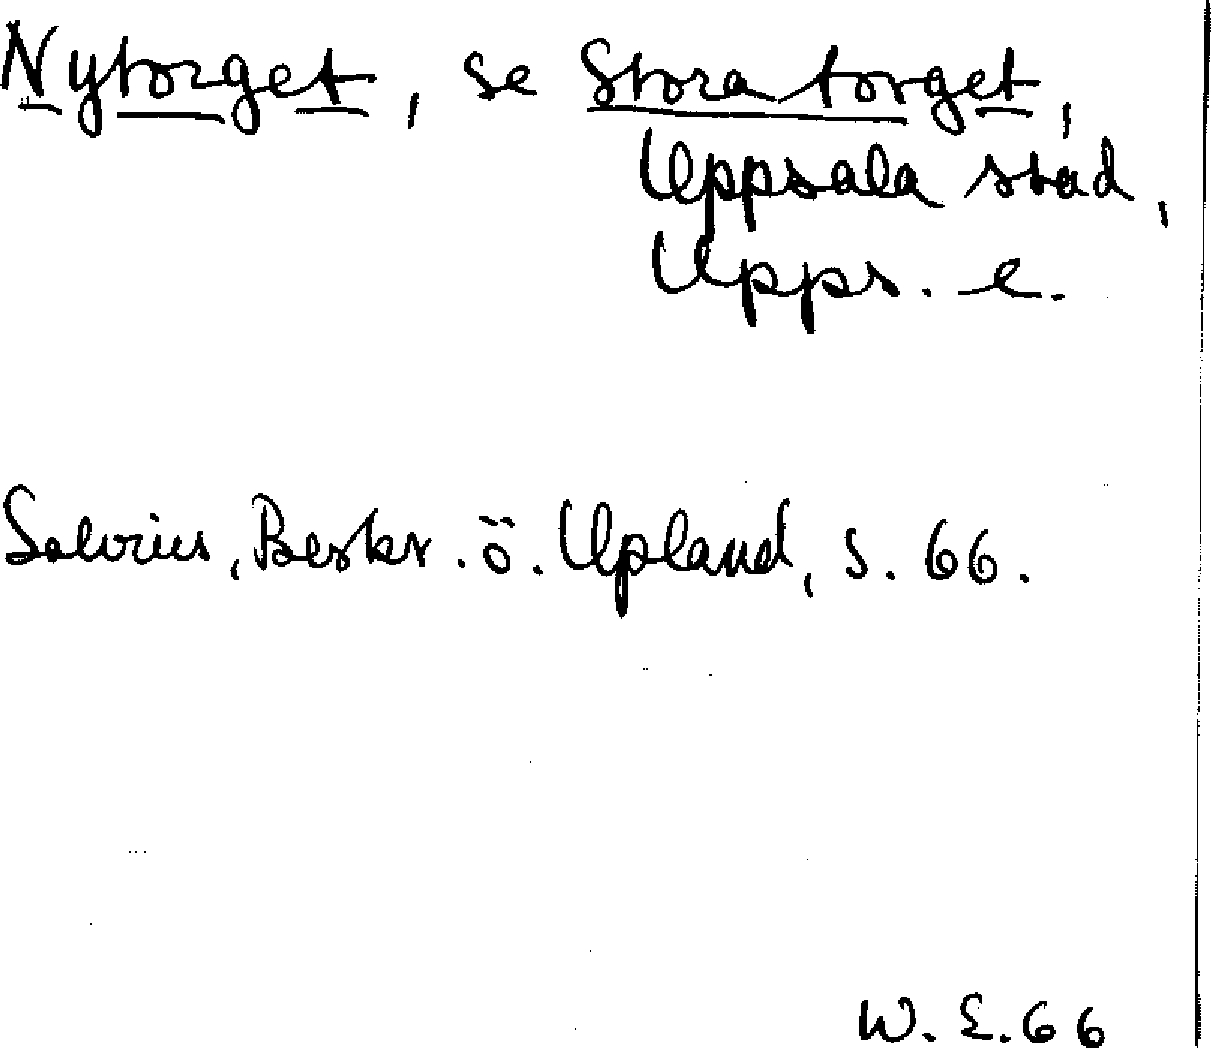 Nytorget, se Stora torget,
Uppsala stad,
Upps. l.
Salvius, Beskr. ö. Upland, s. 66.
W. E. 66